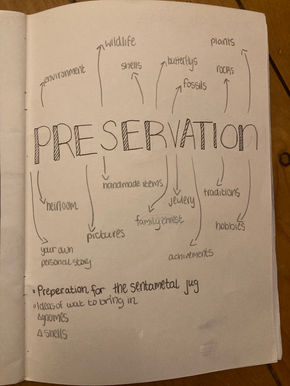 wildlife
plants
shells
butterflys
environment
rocks
fossils
PRESERVATION
handmade items
heirloom
jewlery
traditions
family crest
pictures
hobbies
your own
personal story
achivments
Preperation for the sentametal jug
Ideas of wat to bring in
gnomes
shells